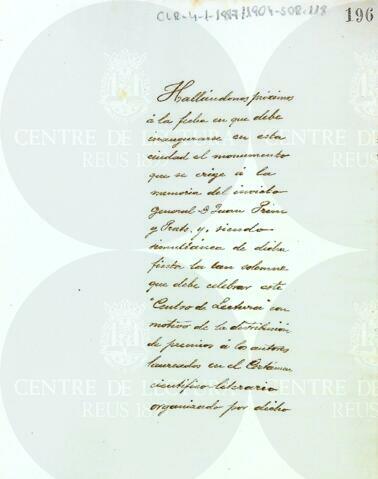 CLR-4-1-1887/1904-SOR.118
196
Hallándonos próximos
á la fecha en que debe
inaugurarse en esta
ciudad el monumento
que se erige á la
memoria del invicto
general D Juan Prim
y Prats, y, siendo
simultánea de dicha
fiesta la tan solemne
que debe celebrar este
"Centro de Lectura" con
motivo de la distribución
de premios á los autores
laureados en el Certámen
científico literario
organizado por dicho
CENTRE DE LECTURA
REUS 1859
CENTRE DE LECTURA
REUS 1859